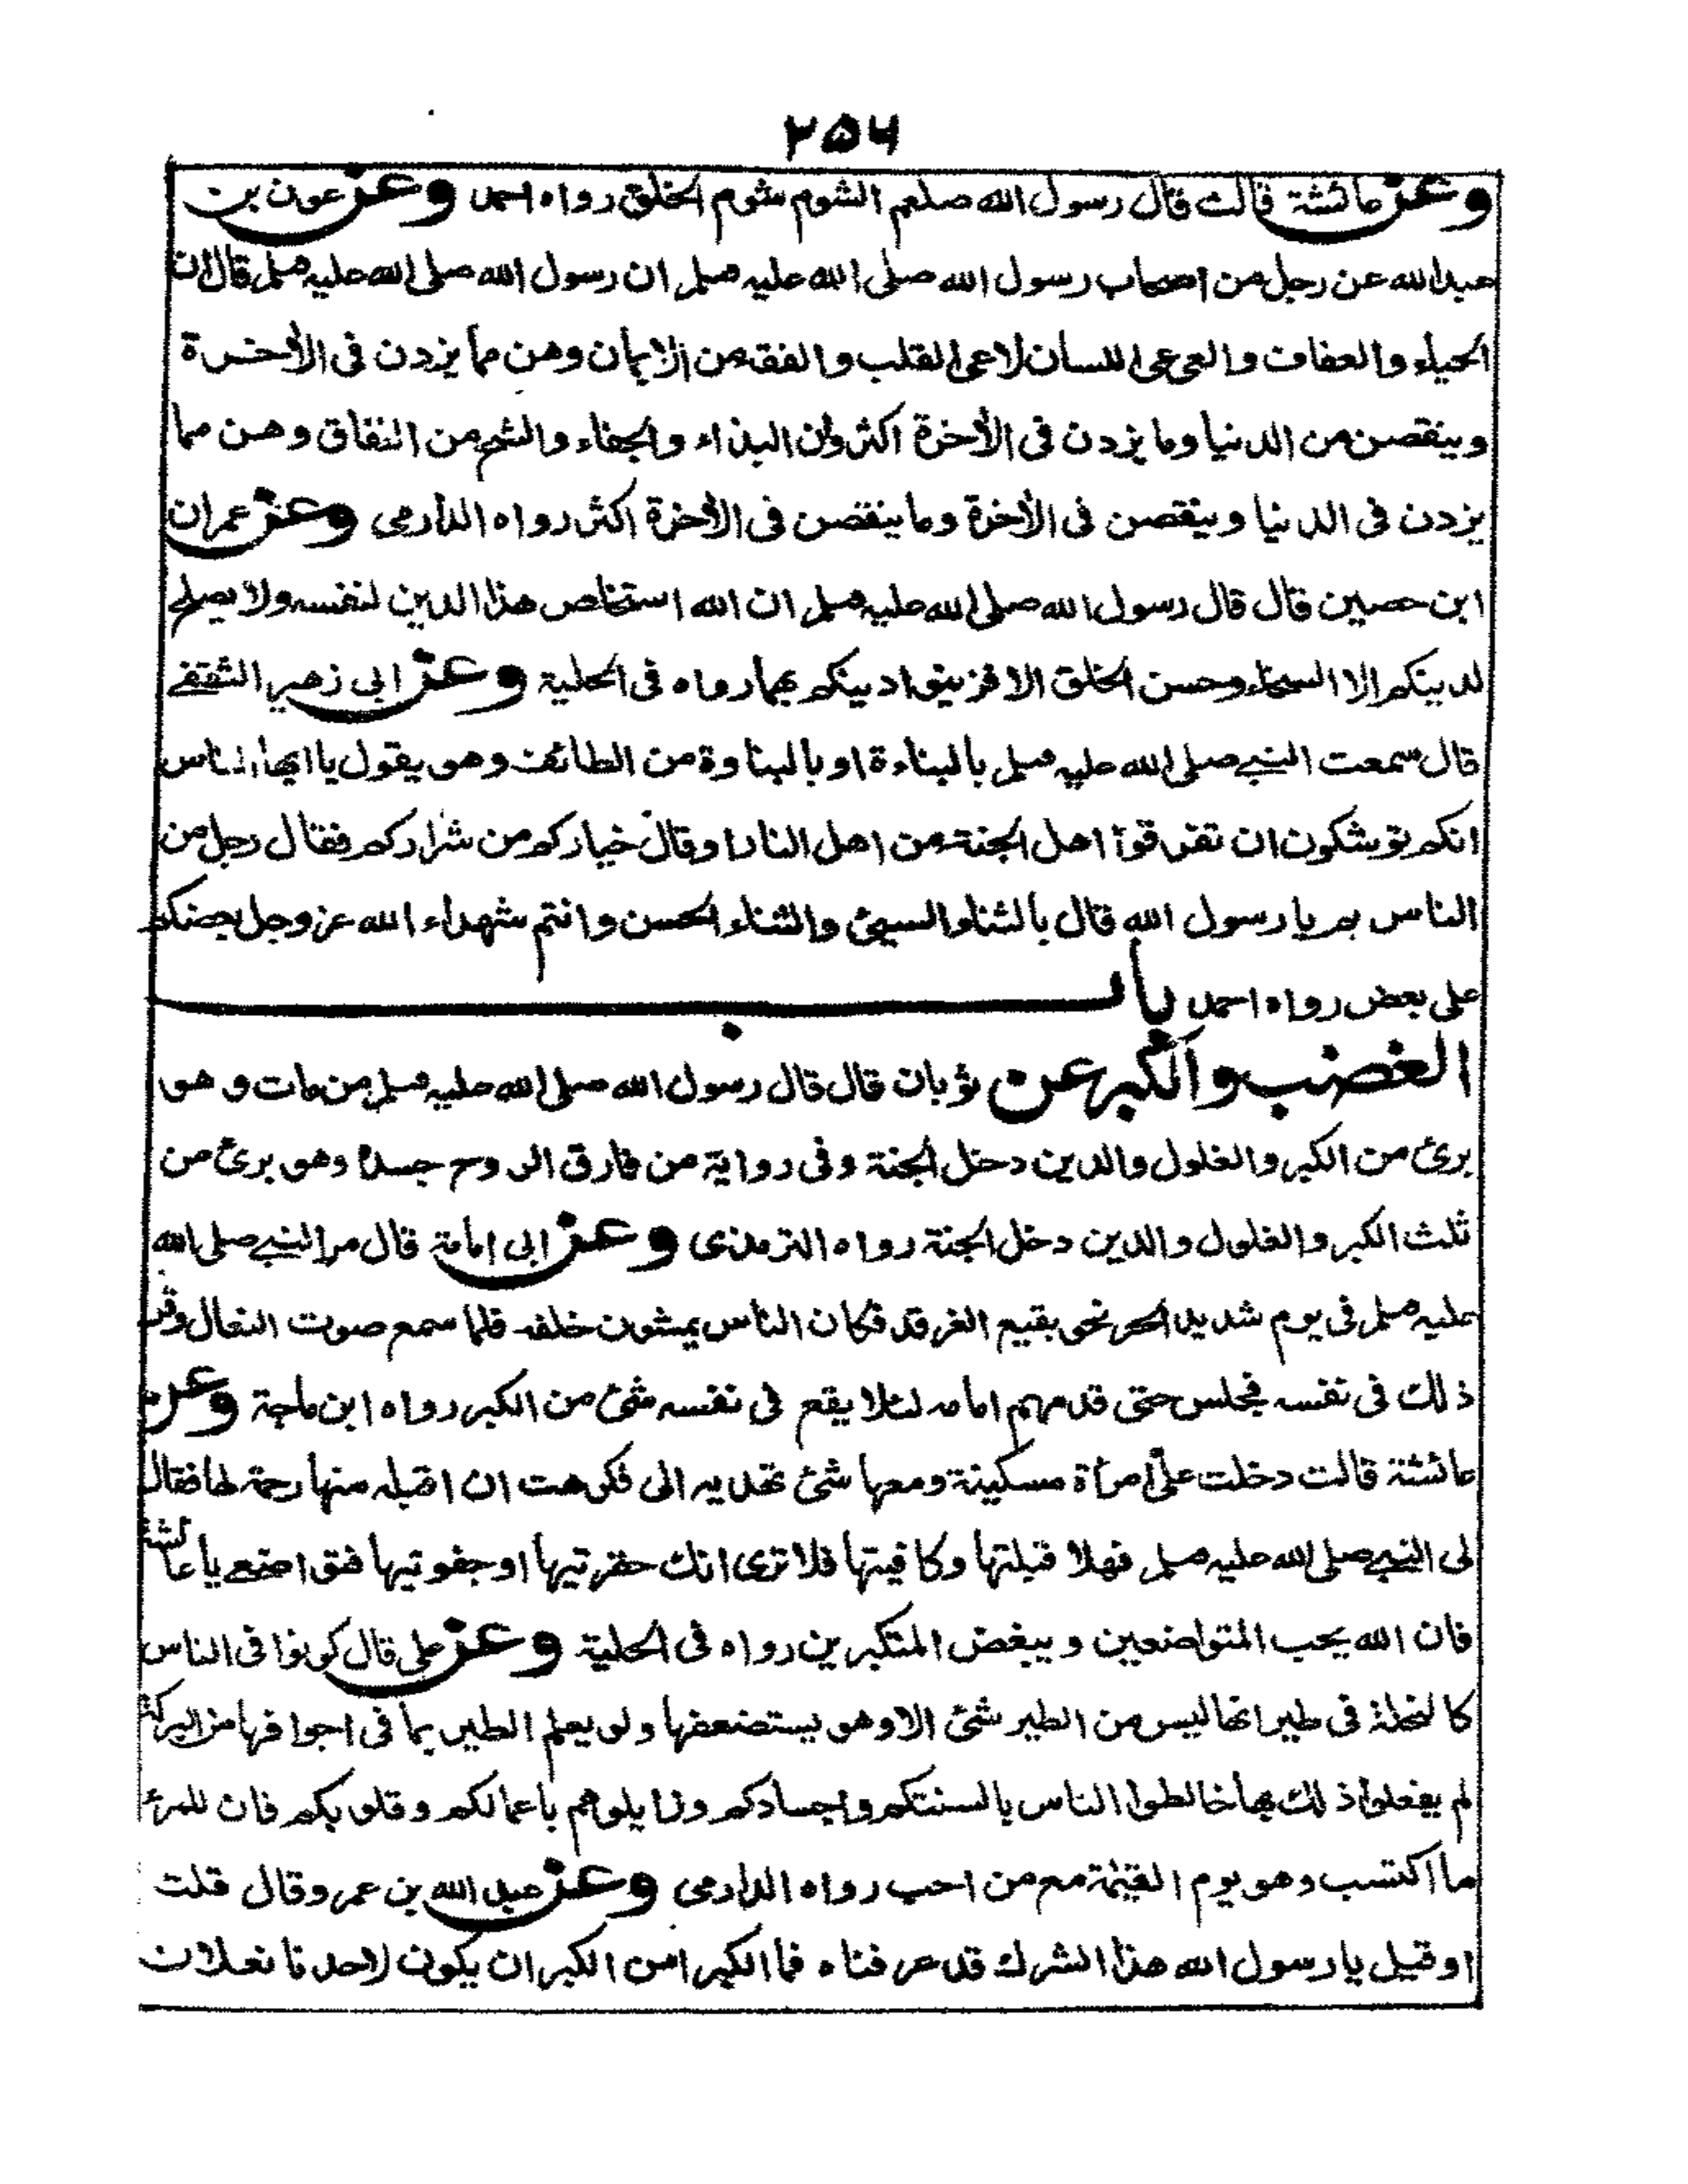 ۲۵۶
وعن عائشة قالت قال رسول الله صلعم الشوم شوم الخلق رواه احمد وعن عون بن
عبدالله عن رجل من اصحاب رسول الله صلى الله عليه وسلم ان رسول الله صلى الله عليه وسلم قال ان
الحياء والعفاف والعى عى اللسان لاعى القلب والفقه من الايمان وهن مما يزدن فى الأخرة
وينقصن من الدنيا وما يزدن فى الأخرة اكثر وان البذاء والجفاء والشح من النفاق وهن مما
يزدن فى الدنيا وينقصن فى الأخرة وما ينقصن فى الأخرة اكثر رواه الدارمى وعن عمران
ابن حصين قال قال رسول الله صلى الله عليه وسلم ان الله استخلص هذا الدين لنفسه ولا يصلح
لدينكم الا السخاء وحسن الخلق الا فزينوا دينكم بهما رواه فى الحلية وعن ابى زهير الثقفے
قال سمعت النبے صلى الله عليه وسلم بالبناءة او بالبناوة من الطائف وهو يقول يا ايها الناس
انكم توشكون ان تفرقوا اهل الجنة من اهل النار او قال خياركم من شراركم فقال رجل من
الناس بم يا رسول الله قال بالثناء السيئ والثناء الحسن وانتم شهداء الله عز وجل بعضكم
على بعض رواه احمد باب
الغضب والكبر عن ثوبان قال قال رسول الله صلى الله عليه وسلم من مات وهو
برئ من الكبر والغلول والدين دخل الجنة وفى رواية من فارق الروح جسده وهو برئ من
ثلث الكبر والغلول والدين دخل الجنة رواه الترمذى وعن ابى امامة قال مر النبے صلى الله
عليه وسلم فى يوم شديد الحر نحو بقيع الغرقد فكان الناس يمشون خلفه فلما سمع صوت النعال وقر
ذلك فى نفسه فجلس حتى قدمهم امامه لئلا يقع فى نفسه شئ من الكبر رواه ابن ماجة وعن
عائشة قالت دخلت علىّ امرأة مسكينة ومعها شئ تهديه الى فكرهت ان اقبله منها رحمة لها فقال
لى النبے صلى الله عليه وسلم فهلا قبلتها وكافيتها فلا ترى انك حقرتيها او جفوتيها فتواضعے يا عائشة
فان الله يحب المتواضعين ويبغض المتكبرين رواه فى الحلية وعن على قال كونوا فى الناس
كالنحلة فى طيرانها ليس من الطير شئ الا وهو يستضعفها ولو يعلم الطير بما فى اجوافها من البركة
لم يفعلوا ذلك بها خالطوا الناس بالسنتكم واجسادكم وزايلوهم باعمالكم وقلوبكم فان للمرء
ما اكتسب وهو يوم القيٰمة مع من احب رواه الدارمى وعن عبد الله بن عمر وقال قلت
او قيل يا رسول الله هذا الشرك قد عرفناه فما الكبر امن الكبر ان يكون لاحدنا نعلان